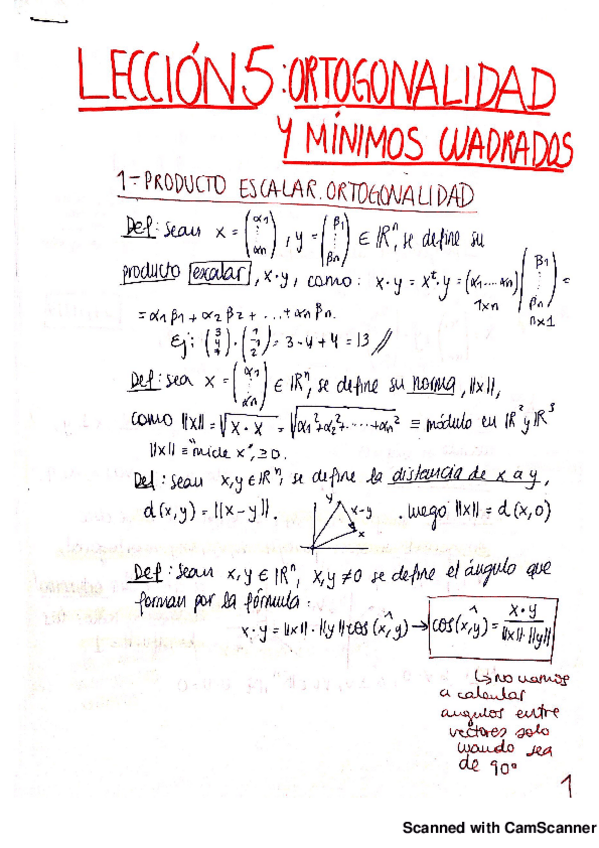 LECCIÓN 5: ORTOGONALIDAD
Y MÍNIMOS CUADRADOS
1- PRODUCTO ESCALAR. ORTOGONALIDAD
Def: Sean x = (α1 ⋮ αn), y = (β1 ⋮ βn) ∈ ℝⁿ, se define su
producto escalar, x·y, como: x·y = xᵗ·y = (α1 ... αn) (β1 ⋮ βn) =
1xn nx1
= α1 β1 + α2 β2 + ... + αn βn.
Ej: (3 4 ) · (1 -1 2) = 3 - 4 + 4 = 13 //
Def: sea x = (α1 ⋮ αn) ∈ ℝⁿ, se define su norma, ||x||,
como ||x|| = √x·x = √α1²+α2²+...+αn² ≡ módulo en ℝ² y ℝ³
||x|| ≡ "mide x", ≥ 0.
Def: sean x,y ∈ ℝⁿ, se define la distancia de x a y,
d(x,y) = ||x-y||. y x-y x . luego ||x|| = d(x,0)
Def: Sean x,y ∈ ℝⁿ, x,y ≠ 0 se define el ángulo que
forman por la fórmula:
x·y = ||x||·||y|| cos(x,y) → cos(x,y) = x·y / ||x||·||y||
↳ no vamos
a calcular
angulos entre
vectores solo
cuando sea
de 90º
1
Scanned with CamScanner